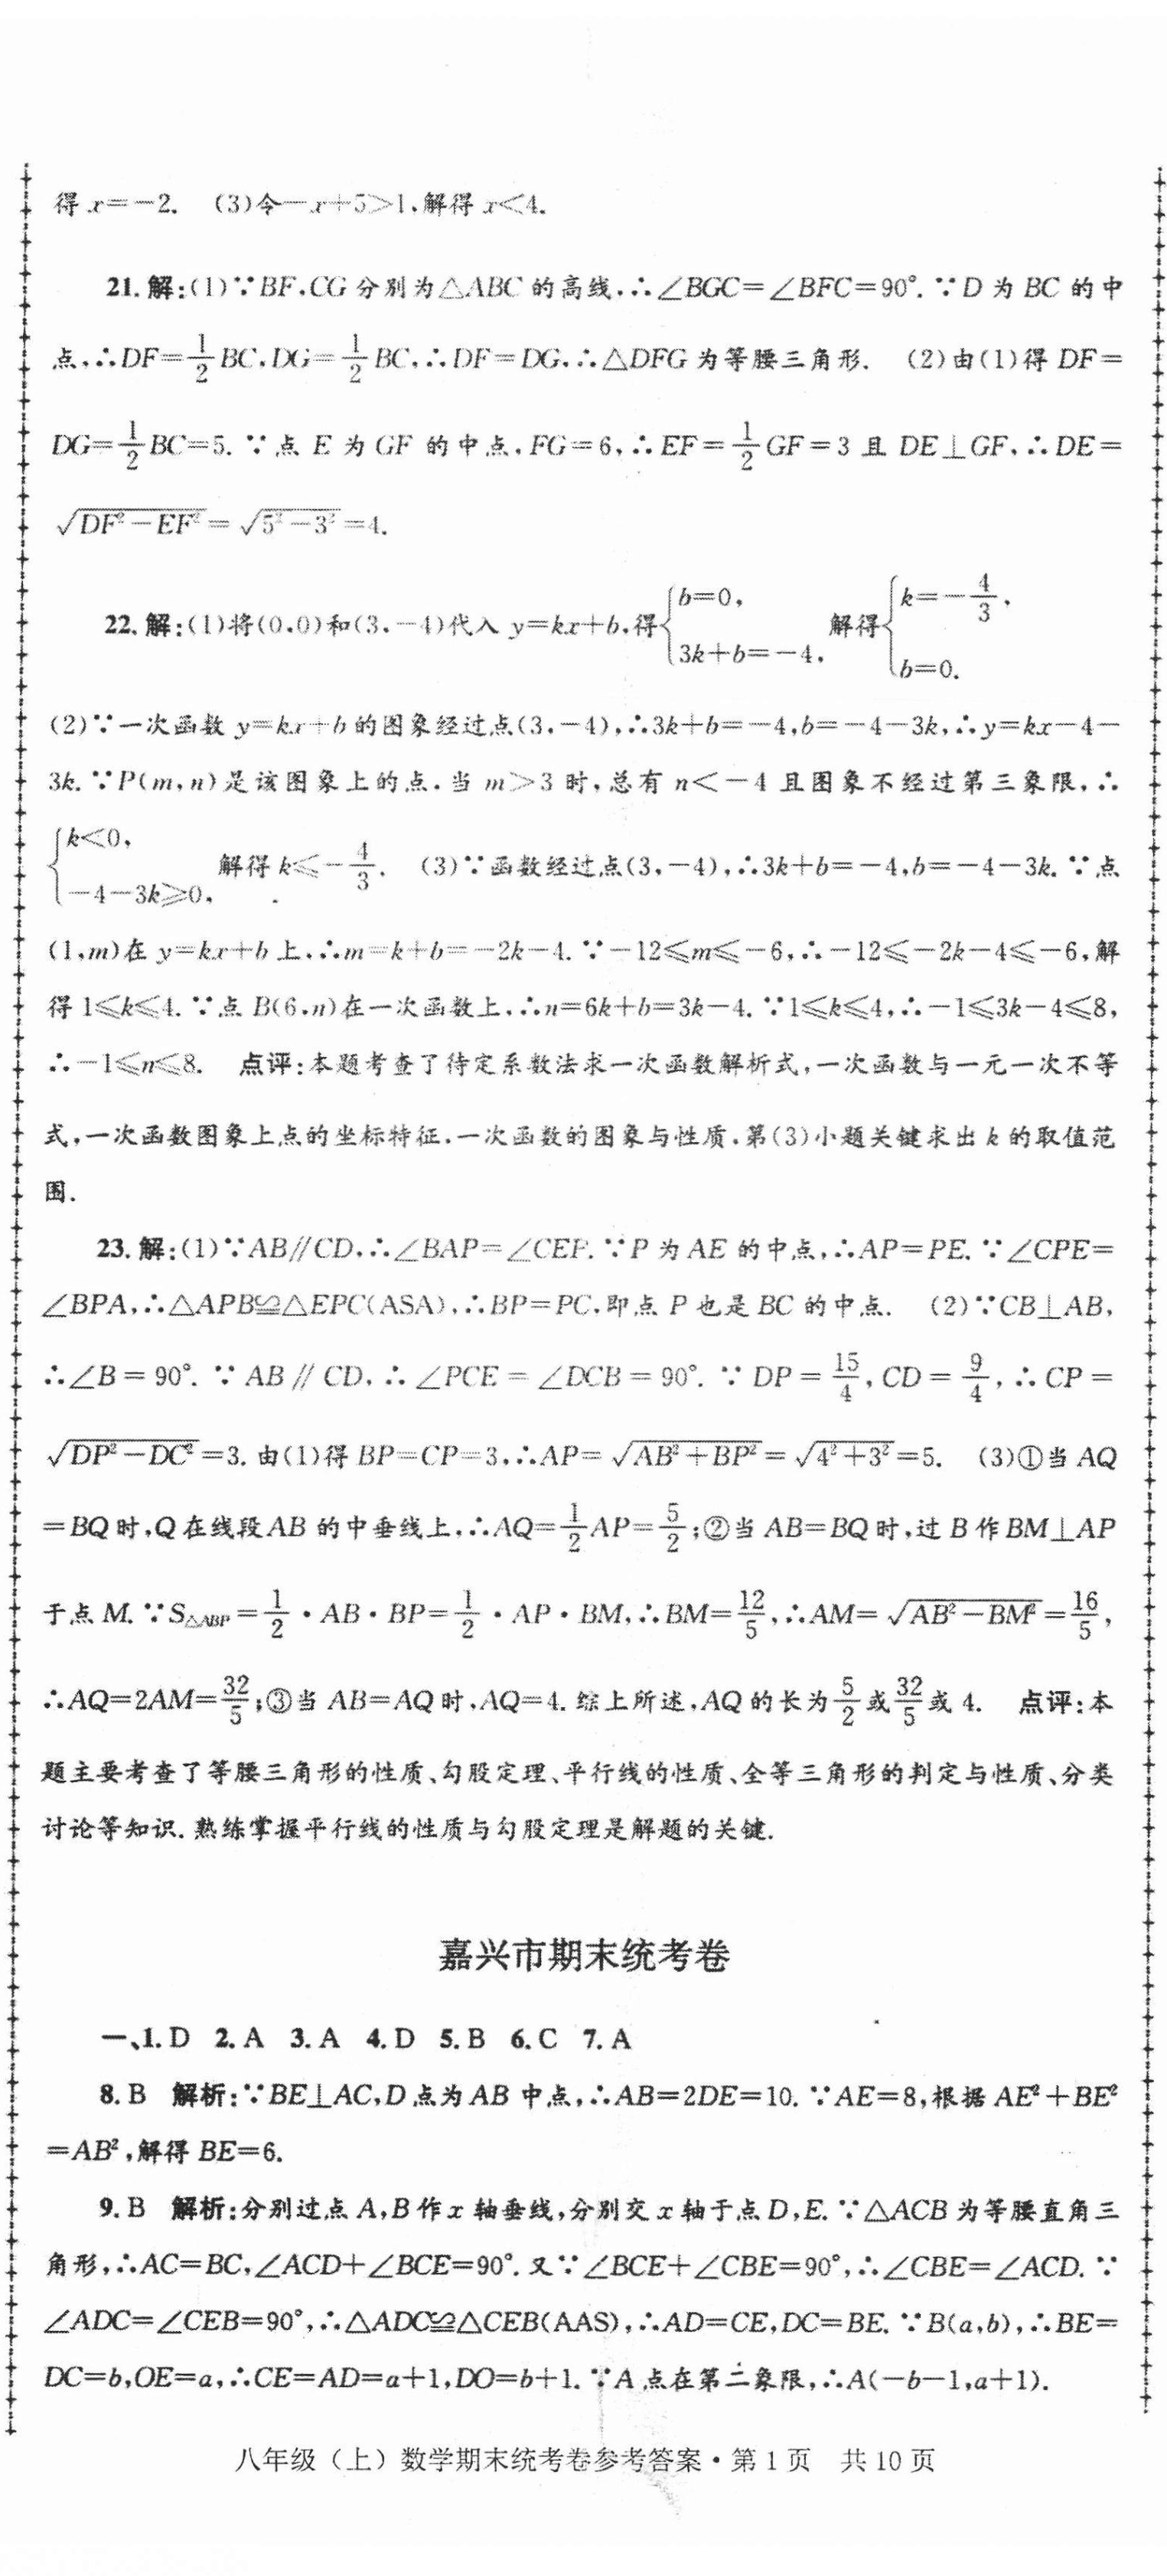 得 x=-2. (3)令-x+5>1,解得 x<4.
21.解:(1)∵BF,CG 分别为△ABC 的高线,∴∠BGC=∠BFC=90°. ∵D 为 BC 的中
点,∴DF=1/2 BC,DG=1/2 BC,∴DF=DG,∴△DFG 为等腰三角形. (2)由(1)得 DF=
DG=1/2 BC=5. ∵点 E 为 GF 的中点,FG=6,∴EF=1/2 GF=3 且 DE⊥GF,∴DE=
√(DF²-EF²)=√(5²-3²)=4.
22.解:(1)将(0,0)和(3,-4)代入 y=kx+b,得{b=0, 3k+b=-4, 解得{k=-4/3, b=0.
(2)∵一次函数 y=kx+b 的图象经过点(3,-4),∴3k+b=-4,b=-4-3k,∴y=kx-4-
3k. ∵P(m,n)是该图象上的点,当 m>3 时,总有 n<-4 且图象不经过第三象限,∴
{k<0, -4-3k≥0, 解得 k≤-4/3. (3)∵函数经过点(3,-4),∴3k+b=-4,b=-4-3k. ∵点
(1,m)在 y=kx+b 上,∴m=k+b=-2k-4. ∵-12≤m≤-6,∴-12≤-2k-4≤-6,解
得 1≤k≤4. ∵点 B(6,n)在一次函数上,∴n=6k+b=3k-4. ∵1≤k≤4,∴-1≤3k-4≤8,
∴-1≤n≤8. 点评:本题考查了待定系数法求一次函数解析式,一次函数与一元一次不等
式,一次函数图象上点的坐标特征,一次函数的图象与性质,第(3)小题关键求出 k 的取值范
围.
23.解:(1)∵AB∥CD,∴∠BAP=∠CEP. ∵P 为 AE 的中点,∴AP=PE. ∵∠CPE=
∠BPA,∴△APB≌△EPC(ASA),∴BP=PC,即点 P 也是 BC 的中点. (2)∵CB⊥AB,
∴∠B=90°. ∵AB∥CD,∴∠PCE=∠DCB=90°. ∵DP=15/4,CD=9/4,∴CP=
√(DP²-DC²)=3. 由(1)得 BP=CP=3,∴AP=√(AB²+BP²)=√(4²+3²)=5. (3)①当 AQ
=BQ 时,Q 在线段 AB 的中垂线上,∴AQ=1/2 AP=5/2;②当 AB=BQ 时,过 B 作 BM⊥AP
于点 M. ∵S△ABP=1/2·AB·BP=1/2·AP·BM,∴BM=12/5,∴AM=√(AB²-BM²)=16/5,
∴AQ=2AM=32/5;③当 AB=AQ 时,AQ=4. 综上所述,AQ 的长为5/2或32/5或 4. 点评:本
题主要考查了等腰三角形的性质、勾股定理、平行线的性质、全等三角形的判定与性质、分类
讨论等知识. 熟练掌握平行线的性质与勾股定理是解题的关键.
嘉兴市期末统考卷
一、1. D 2. A 3. A 4. D 5. B 6. C 7. A
8. B 解析:∵BE⊥AC,D 点为 AB 中点,∴AB=2DE=10. ∵AE=8,根据 AE²+BE²
=AB²,解得 BE=6.
9. B 解析:分别过点 A,B 作 x 轴垂线,分别交 x 轴于点 D,E. ∵△ACB 为等腰直角三
角形,∴AC=BC,∠ACD+∠BCE=90°. 又∵∠BCE+∠CBE=90°,∴∠CBE=∠ACD. ∵
∠ADC=∠CEB=90°,∴△ADC≌△CEB(AAS),∴AD=CE,DC=BE. ∵B(a,b),∴BE=
DC=b,OE=a,∴CE=AD=a+1,DO=b+1. ∵A 点在第二象限,∴A(-b-1,a+1).
八年级（上）数学期末统考卷参考答案·第 1 页 共 10 页